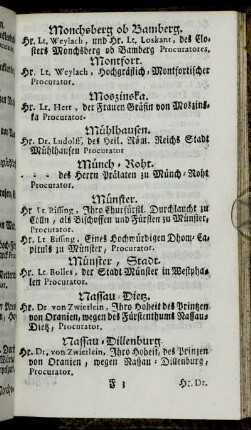 Monchsberg ob Bamberg.
Hr. Lt. Weylach, und Hr. Lt. Loskant, des Clo-
sters Monchsberg ob Bamberg Procuratores.
Montfort.
Hr. Lt. Weylach, Hochgräflich-Montfortischer
Procurator.
Moszinska.
Hr. Lt. Hert, der Frauen Gräfin von Moszins-
ka Procurator.
Mühlhausen.
Hr. Dr. Ludolff, des Heil. Röm. Reichs Stadt
Mühlhausen Procurator
Münch-Roht.
- - - des Herrn Prälaten zu Münch-Roht
Procurator.
Münster.
Hr. Lt. Bissing, Ihro Churfürstl. Durchlaucht zu
Cölln, als Bischoffen und Fürsten zu Münster,
Procurator.
Hr. Lt. Bissing, Eines Hochwürdigen Dhom-Ca-
pituls zu Münster, Procurator.
Münster, Stadt.
Hr. Lt. Bolles, der Stadt Münster in Westpha-
len Procurator.
Nassau-Dietz.
Hr. Dr von Zwierlein, Ihro Hoheit des Printzen
von Oranien, wegen des Fürstenthums Nassau-
Dietz, Procurator.
Nassau-Dillenburg.
Hr. Dr. von Zwierlein, Ihro Hoheit, des Prinzen
von Oranien, wegen Nassau-Dillenburg,
Procurator.
F 3 Hr. Dr.